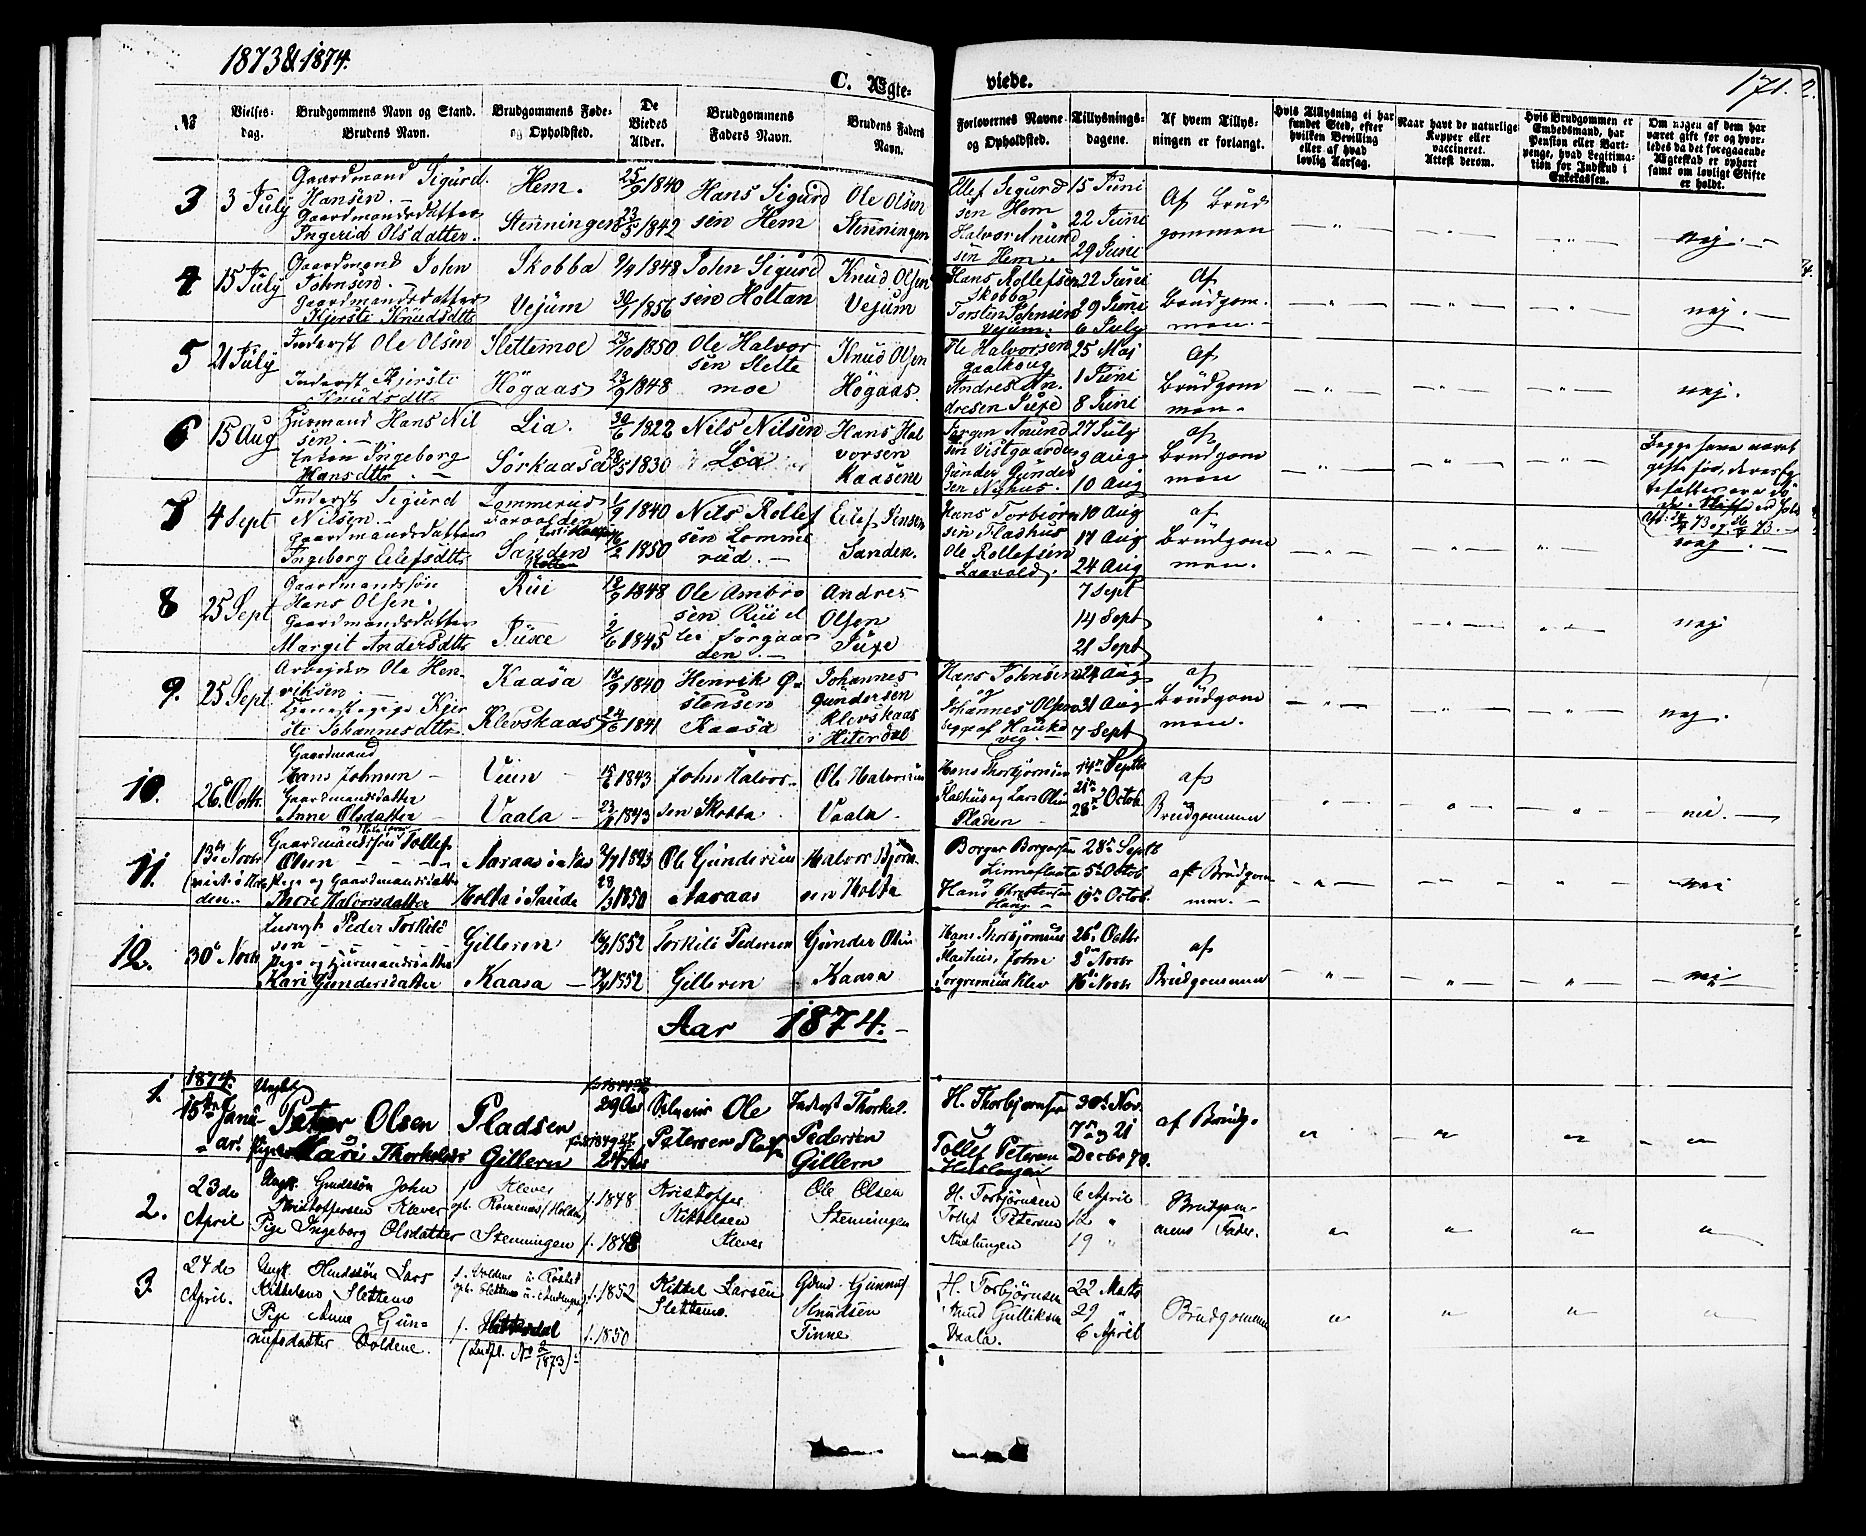 1873 & 1874.
171.
C. Ægte-
viede.
No
Vielses-
dag.
Brudgommens Navn og Stand.
Brudens Navn.
Brudgommens Føde-
og Opholdsted.
De
Viedes
Alder.
Brudgommens
Faders Navn.
Brudens Faders
Navn.
Forlovernes Navne
og Opholdsted.
Tillysnings-
dagene.
Af hvem Tillys-
ningen er forlangt.
Hvis Tillysning ei har
fundet Sted, efter
hvilken Bevilling
eller af hvad
lovlig Aarsag.
Naar havt de naturlige
Kopper eller
vaccineret.
Attest derom.
Hvis Brudgommen er
Embedsmand, har
Pension eller Vart-
penge, hvad Legitima-
tion for Indskud i
Enkekassen.
Om nogen af dem har
været gift før og hvor-
ledes da det foregaaende
Ægteskab er ophørt
samt om lovligt Skifte
er holdt.
3
3 July
Gaardmand Sigurd
Hansen.
Gaardmandsdatter
Ingerid Olsdatter.
Hem.
Stenningen
25/9 1840
23/5 1842
Hans Sigurd
sen Hem
Ole Olsen
Stenningen
Olef Segurd
sen Hem
Halvor Anund
sen Hem.
15 Juni
22 Juni
29 Juni
Af Brud
gommen
nej.
4
15 July
Gaardmand John
Johnsen.
Gaardmandsdatter
Kjersti Knudsdttr
Skobba
Vejum
9/9 1848
30/7 1856
John Sigurd
sen Holtan
Knud Olsen
Vejum
Hans Rollefsen
Skobba
Torstin Johnsen
Vejum.
22 Juni
29 Juni
6 July
Af
Brudgom.
men.
nej.
5
21 July
Inderst Ole Olsen
Inderst Kjersti
Knudsdttr
Slettemoe
Högaas
23/10 1850
23/9 1848
Ole Halvor
sen Slette
moe
Knud Olsen
Högaas.
Ole Halvorsen
Andres An.
dresen Juxe
25 Maj
1 Juni
8 Juni
af
Brudgom
men.
nej.
6
15 Aug
Hurmand Hans Nil
sen.
Enken Ingeborg
Hansdttr.
Lia.
Sörkaasa
30/6 1822
28/5 1830
Nils Nilsen
Lia
Hans Hal
vorsen
Kaasene
Jörgen Anund
sen Vistgaarden
Gunder Gunder
sen Nyhus.
27 July
3 Aug
10 Aug
af
Brudgom
men
Begge have været
gifte för, deres Eg
tefæller ere dö
de.
7
4 Sept
Inderst Sigurd
Nilsen.
Gaardmandsdatter
Ingeborg Eilefsdttr
Lommerud
Sanden
Holden
1/9 1840
16/2 1850
Nils Rollef
sen Lomme
rud.
Eilef Jensen
Sanden.
Hans Torbiörn
sen Flashus
Ole Rollefsen
Laavold.
10 Aug
17 Aug
24 Aug
af
Brudgom
men.
nej.
8
25 Sept
Gaardmandssön
Hans Olsen.
Gaardmandsdatter
Margit Andersdttr
Rui
Juxe
12/9 1848
2/6 1845
Ole Ambro
sen Rui
den.
Andres
Olsen
Juxe
7 Sept
14 Sept
21 Sept
nej
9.
25 Sept.
Arbejder Ole Hen-
riksen
Tjenestepige Kjer
sti Johannesdttr
Kaasa
Klevskaas
14/9 1840
24/6 1841
Henrik Ø-
stensen
Kaasa
Johannes
Gundersen
Klevskaas
i Hiterdal
Hans Johnsen
og
Johannes Olsen
begge af Hauke
veg.
24 Aug
31 Aug
7 Sept
af
Brudgom
men.
nej.
10.
26 Octbr.
Gaardmand
Hans Johnsen
Gaardmandsdatter
Anne Olsdatter
Vuin
Vaala
15/2 1843
1843
John Halvor-
sen Skobba
Ole Halvorsen
Vaala.
Hans Thorbjörnsen
Flashus og Lars Olsen
Pladsen
14de Septb
21de
28de Octob
af
Brudgommen
nei.
11.
13de Novbr
(viet i Hol-
den.
Gaardmandssön Tollef
Olsen
Pige og Gaardmandsdatter
Thore Halvorsdatter
Aaraas
Holta i Saude
2/7 1843
28/3 1850
Ole Gundersen
Aaraas
Halvor Björn-
sen Holta
Borger Borgersen
Linneflaata
Hans Christensen
28de Septb
5de Octob
19de Octob.
af Brudgom
men.
nei
12.
30de Novb
Inderst Peder Torkild
sen
Pige og Hurmandsdatter
Kari Gundersdatter
Gilleren
Kaasa
1852
1852
Torkild Pedersen
Gilleren
Gunder Olsen
Kaasa
Hans Thorbjörnsen
Flashus, John
Torgrimsen Klev
26de Octbr
2de Novbr
16de Novbr
af
Brudgommen
nei
Aar 1874.
1.
1874.
15de Janu-
ar.
Ungkl
Peter Olsen
Kari Thorkelsdr
Pladsen
Gillern
29 Aar
24 Aar
Ole
Petersen
Inderst Thorkel.
Pedersen
Gillern
H. Thorbjørnsen
og
Tollef Petersen
30te Nov.
7de og 21
Decbr 73.
af Brudg.
2.
23de
April
Ungk. Gmdssön John
Kristoffersen Klever
Pige Ingeborg Olsdatter
f. Klever
oph. Romenæs/Holden
Stenningen
f. 1848
f. 1848
Kristoffer
Kittelsen
Klever
Ole Olsen
Stenningen
H. Torbjørnsen
Tollef Petersen
6 April
12 "
19 "
Brudgom-
mens Fader.
3.
24de
April.
Ungk. Lars
Kittelsen Slettemo
Pige Anne Gun-
nufsdatter Voldene.
f. Hitterdal
(Indfl. No 2/1873)
f. 1852
f. 1850
Kittel Larsen
Slettemo.
Gmd. Gunnuf
Knudsen
Tinne
H. Torbjørnsen
Knud Gulliksen
Vaala.
22 Marts
29 "
6 April
Brudgommen